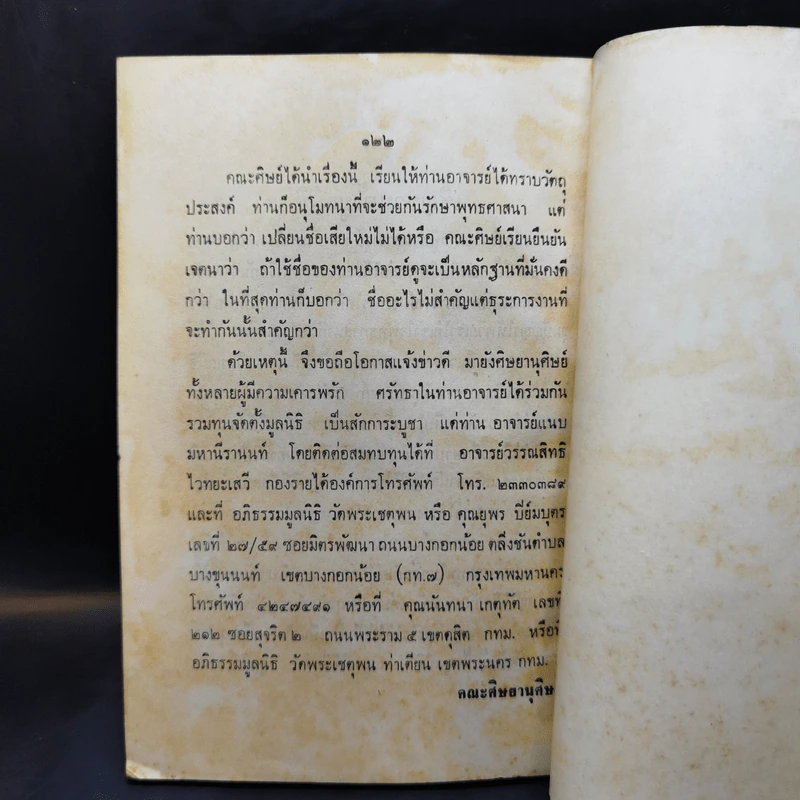 ๑๒๒
คณะศิษย์ได้นำเรื่องนี้ เรียนให้ท่านอาจารย์ได้ทราบวัตถุ
ประสงค์ ท่านก็อนุโมทนาที่จะช่วยกันรักษาพุทธศาสนา แต่
ท่านบอกว่า เปลี่ยนชื่อเสียใหม่ไม่ได้หรือ คณะศิษย์เรียนยืนยัน
เจตนาว่า ถ้าใช้ชื่อของท่านอาจารย์ดูจะเป็นหลักฐานที่มั่นคงดี
กว่า ในที่สุดท่านก็บอกว่า ชื่ออะไรไม่สำคัญแต่ธุระการงานที่
จะทำกันนั้นสำคัญกว่า
ด้วยเหตุนี้ จึงขอถือโอกาสแจ้งข่าวดี มายังศิษยานุศิษย์
ทั้งหลายผู้มีความเคารพรัก ศรัทธาในท่านอาจารย์ได้ร่วมกัน
รวมทุนจัดตั้งมูลนิธิ เป็นสักการะบูชา แด่ท่าน อาจารย์แนบ
มหานีรานนท์ โดยติดต่อสมทบทุนได้ที่ อาจารย์วรรณสิทธิ
ไวทยะเสวี กองรายได้องค์การโทรศัพท์ โทร. ๒๓๓๐๓๘๙
และที่ อภิธรรมมูลนิธิ วัดพระเชตุพน หรือ คุณยุพร ปี่ย์มบุตร
เลขที่ ๒๗/๕๙ ซอยมิตรพัฒนา ถนนบางกอกน้อย ตลิ่งชันตำบล
บางขุนนนท์ เขตบางกอกน้อย (กท.๗) กรุงเทพมหานคร
โทรศัพท์ ๔๒๔๗๔๙๑ หรือที่ คุณนันทนา เกตุทัต เลขที่
๒๑๒ ซอยสุจริต ๒ ถนนพระราม ๕ เขตดุสิต กทม. หรือที่
อภิธรรมมูลนิธิ วัดพระเชตุพน ท่าเตียน เขตพระนคร กทม.
คณะศิษยานุศิษ